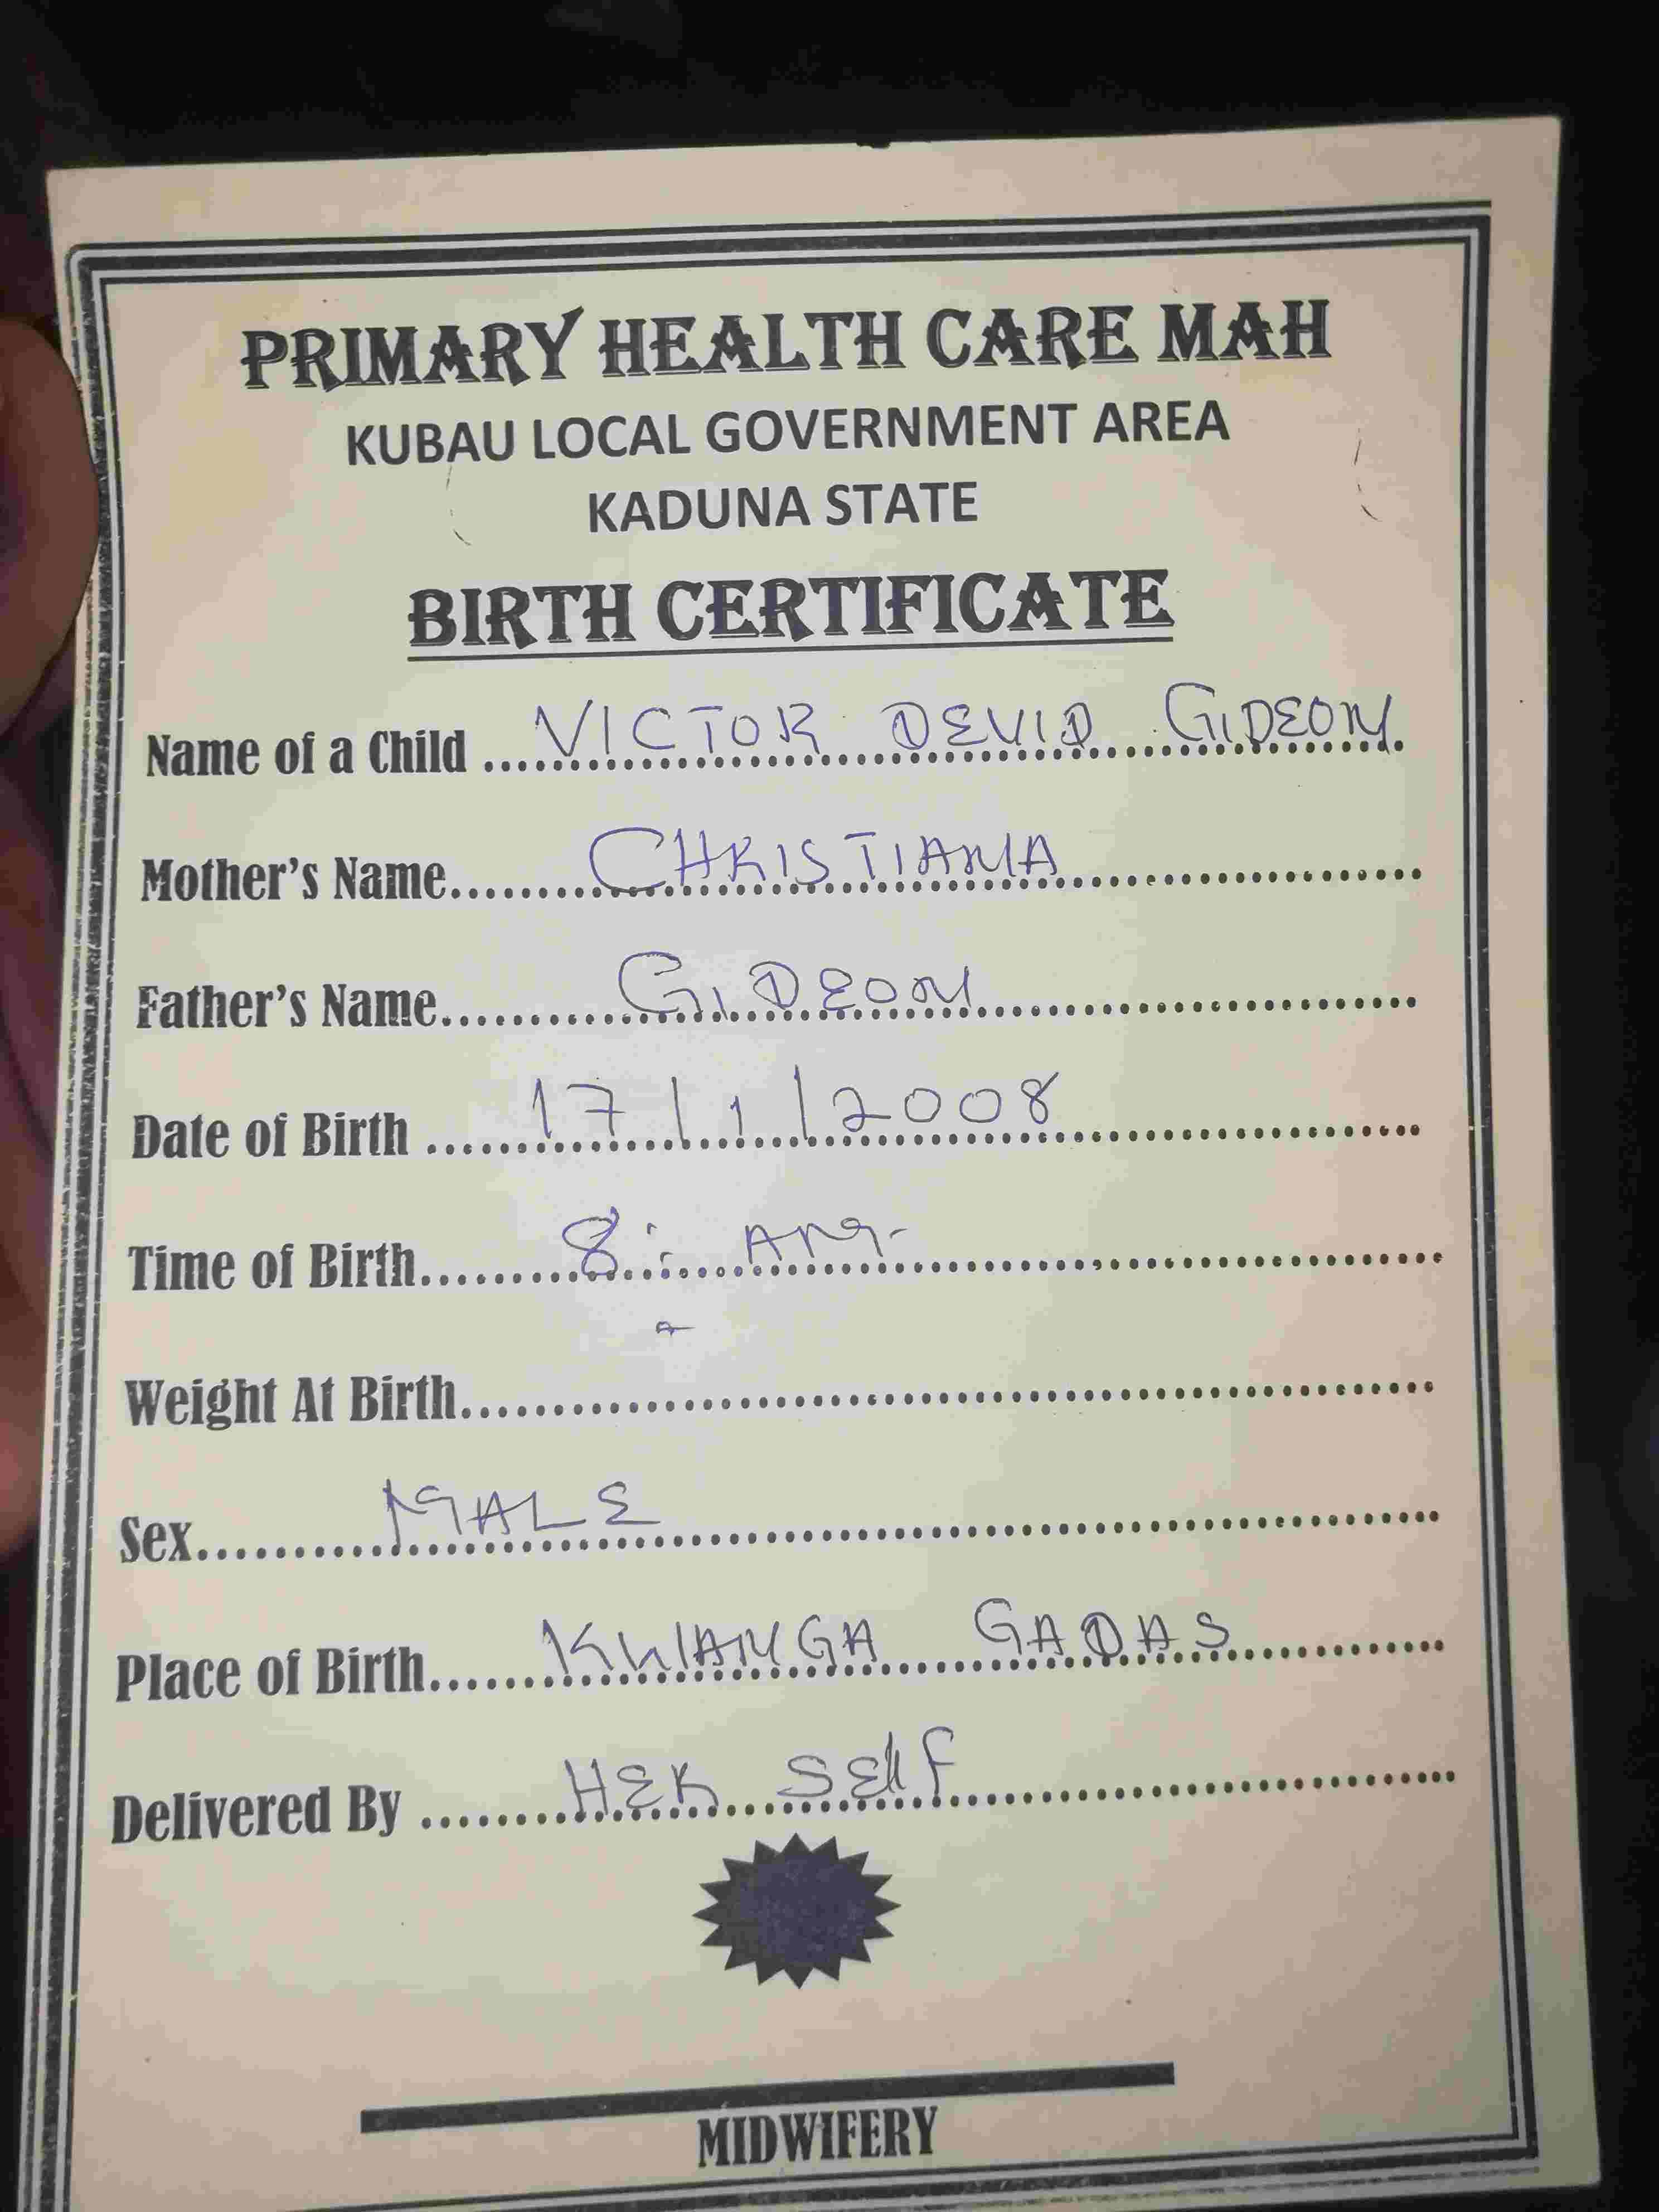 PRIMARY HEALTH CARE MAH
KUBAU LOCAL GOVERNMENT AREA
KADUNA STATE
BIRTH CERTIFICATE
Name of a Child ........ VICTOR DEVID GIDEON
Mother's Name ........ CHRISTIANA
Father's Name ........ GIDEON
Date of Birth ........ 17/1/2008
Time of Birth ........ 8:- AM-
Weight At Birth ........
Sex ........ MALE
Place of Birth ........ KWANGA GADAS
Delivered By ........ HER SELF
MIDWIFERY